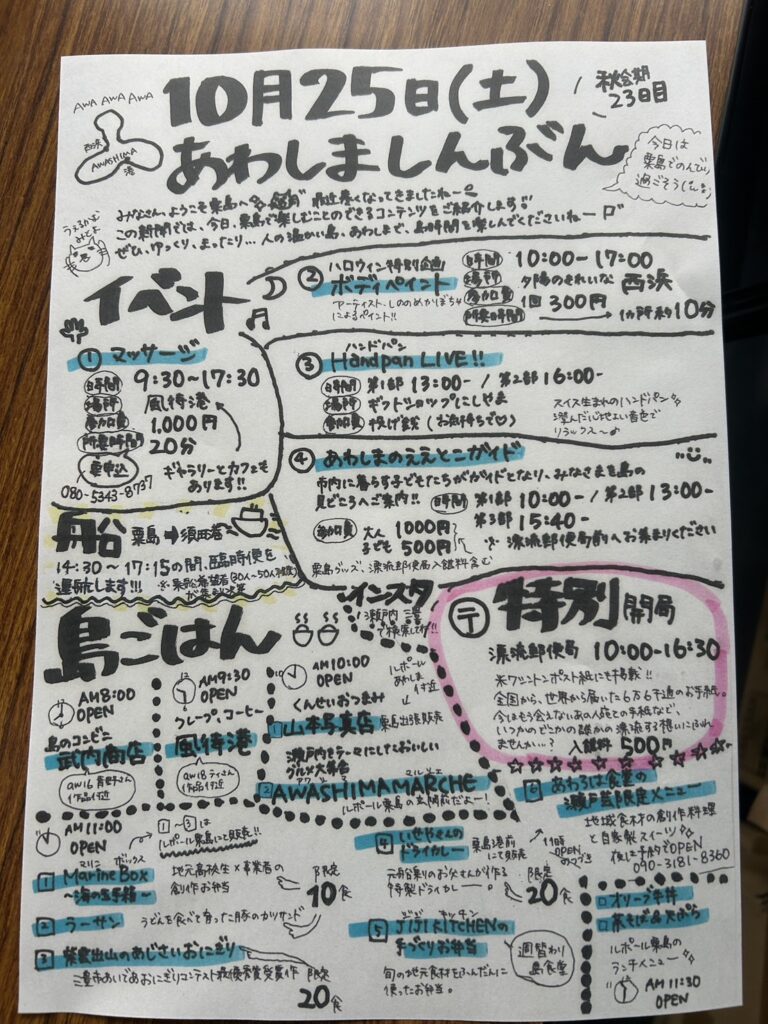 AWA AWA AWA
西浜
AWASHIMA
港
10月25日(土)
秋会期
23日目
あわしましんぶん
今日は
粟島でのんびり
過ごそう
みなさん、ようこそ粟島へ 最近寒くなってきましたねー
この新聞では、今日、粟島で楽しむことのできるコンテンツをご紹介します!
ぜひ、ゆっくり、まったり…人の温かい島、あわしまで、島時間を楽しんでくださいねー
イベント
① マッサージ
時間 9:30~17:30
場所 風待港
参加費 1,000円
所要時間 20分
要申込
080-5343-8737
ギャラリーとカフェも
あります!!
② ハロウィン特別企画
ボディペイント
アーティスト、しののめかぼちゃ
によるペイント!!
時間 10:00-17:00
場所 夕陽のきれいな 西浜
参加費 1回 300円
所要時間 1ヵ所約10分
ハンドパン
③ Handpan LIVE!!
時間 第1部 13:00- / 第2部 16:00-
場所 ギフトショップにしやま
参加費 投げ銭(お気持ちで♡)
スイス生まれのハンドパン
澄んだ心地よい音色で
リラックス~♪
④ あわしまのええとこガイド
市内に暮らす子どもたちがガイドとなり、みなさまを島の
見どころへご案内!! 時間 第1部 10:00- / 第2部 13:00-
第3部 15:40-
参加費 大人 1000円
子ども 500円
※ 漂流郵便局前へお集まりください
粟島グッズ、漂流郵便局入館料含む
船 粟島➡須田港
14:30~17:15の間、臨時便を
運航します!!!
※ 乗船希望者(30人~50人程度)
が集まり次第
インスタ
瀬戸内
で検索してけ!!
〒 特別開局
漂流郵便局 10:00-16:30
米ワシントンポスト紙にも掲載!!
全国から、世界から届いた6万6千通のお手紙。
今はもう会えないあの人宛ての手紙など、
いつかのどこかの誰かの漂流する想いにふれ
ませんか…? 入館料 500円
島ごはん
AM8:00
OPEN
島のコンビニ
武内商店
aw16
作品付近
AM9:30
OPEN
クレープ、コーヒー
風待港
aw18
作品付近
AM10:00
OPEN
ルポール
あわしま
付近
くんせいおつまみ
1 山本写真店 粟島出張販売
瀬戸内をテーマにしておいしい
グルメ大集合
アワシマ マルシェ
2 AWASHIMAMARCHE
ルポール粟島の玄関前だよー!
AM11:00
OPEN
1~3は
ルポール粟島にて販売!!
マリン ボックス
1 Marine Box
~海の玉手箱~
地元高校生×事業者の
創作お弁当
限定
10食
2 ラーサン
うどんを食べて育った豚のカツサンド
3 紫雲出山のあじさいおにぎり
三豊市あいであおにぎりコンテスト最優秀賞受賞作
限定
20食
4 いせやさんの
ドライカレー
粟島港前
にて販売
元船乗りのお父さんが作る
特製ドライカレー。
限定
20食
11時
OPEN
のつづき
ジジ キッチン
5 JIJI KITCHENの
手づくりお弁当
旬の地元食材をふんだんに
使ったお弁当。
週替わり
島食堂
6 あわろは食堂の
瀬戸芸限定メニュー
地域食材の創作料理
と自家製スイーツ
夜は予約でOPEN
090-3181-8360
オリーブ牛丼
茶そば&天ぷら
ルポール粟島の
ランチメニュー
AM 11:30
OPEN